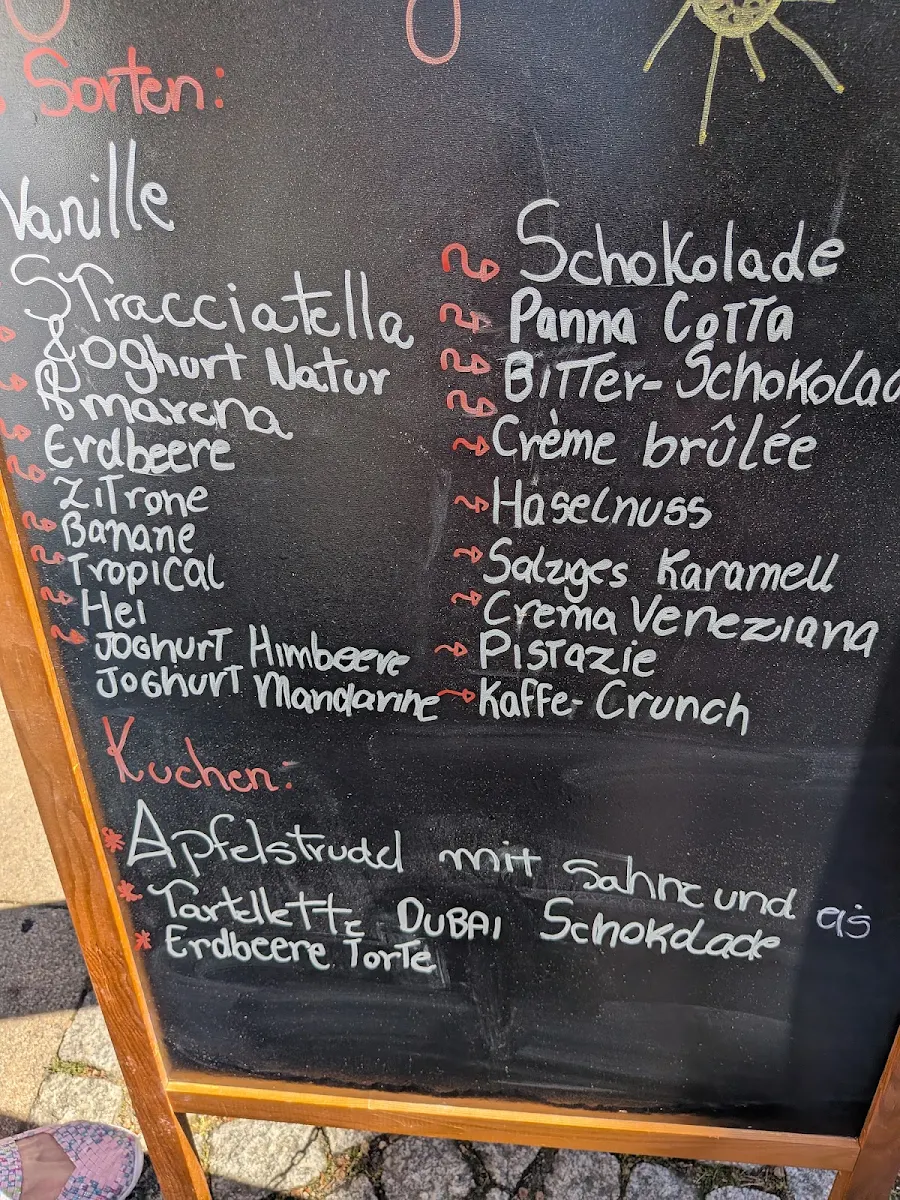 Sorten:
Vanille
Stracciatella
Joghurt Natur
Amarena
Erdbeere
Zitrone
Banane
Tropical
Hei
Joghurt Himbeere
Joghurt Mandarine
Schokolade
Panna Cotta
Bitter-Schokolad
Crème brûlée
Haselnuss
Salziges Karamell
Crema Veneziana
Pistazie
Kaffe-Crunch
Kuchen:
Apfelstrudel mit Sahne und eis
Tartellette DUBAI Schokolade
Erdbeere Torte